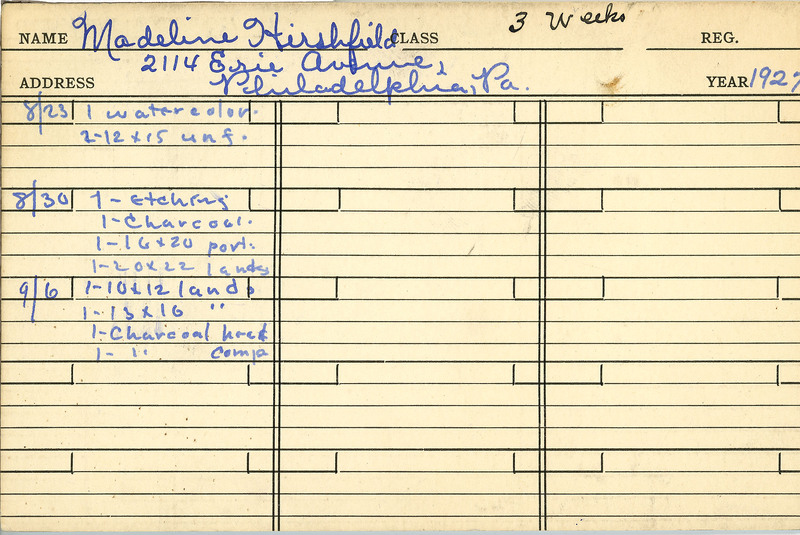 NAME Madeline Hirshfield CLASS 3 Weeks REG.
2114 Erie Avenue,
ADDRESS Philadelphia, Pa. YEAR 1927
8/23 1 watercolor.
2-12x15 unf.
8/30 1-Etching
1-Charcoal.
1-16x20 port.
1-20x22 lands
9/6 1-10x12 lands
1-13x16 "
1-Charcoal head
1- " comp